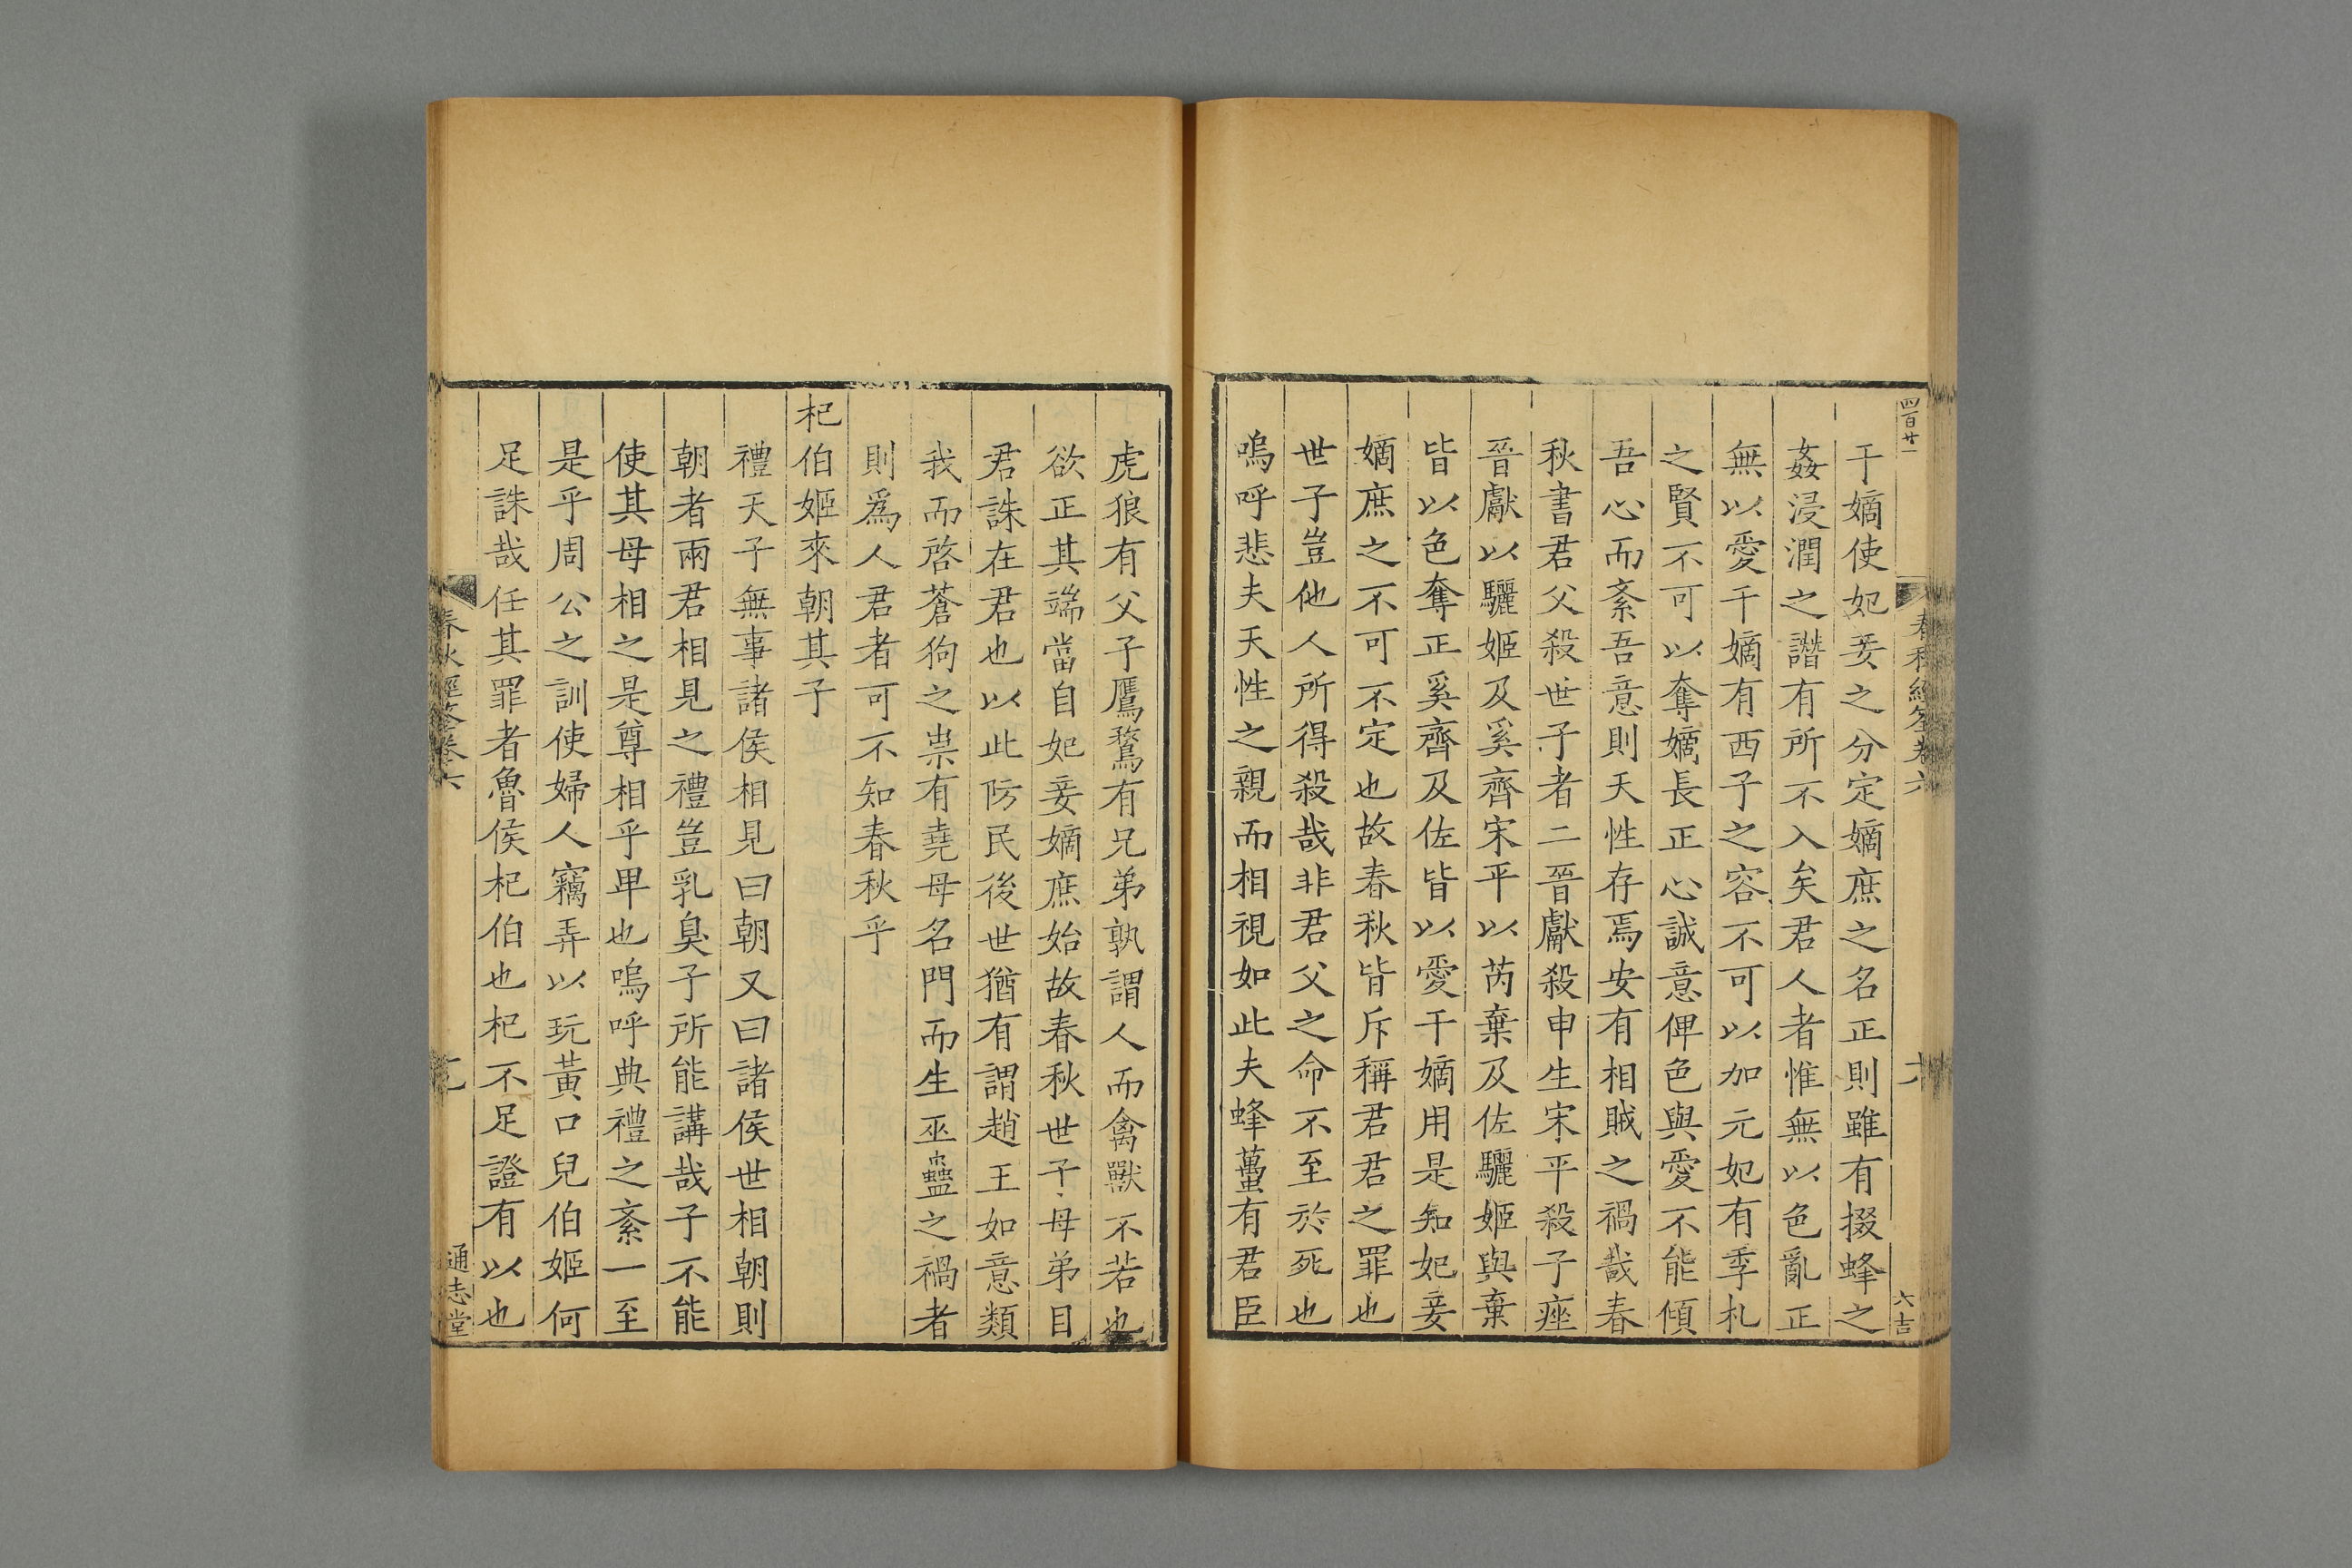 四百廿一
春秋經筌卷六
六吉
干嫡使妃妾之分定嫡庶之名正則雖有掇蜂之
姦浸潤之譖有所不入矣君人者惟無以色亂正
無以愛干嫡有西子之容不可以加元妃有季札
之賢不可以奪嫡長正心誠意俾色與愛不能傾
吾心而紊吾意則天性存焉安有相賊之禍哉春
秋書君父殺世子者二晉獻殺申生宋平殺子痤
晉獻以驪姬及奚齊宋平以芮棄及佐驪姬與棄
皆以色奪正奚齊及佐皆以愛干嫡用是知妃妾
嫡庶之不可不定也故春秋皆斥稱君君之罪也
世子豈他人所得殺哉非君父之命不至於死也
嗚呼悲夫天性之親而相視如此夫蜂蠆有君臣
虎狼有父子鷹鶩有兄弟孰謂人而禽獸不若也
欲正其端當自妃妾嫡庶始故春秋世子母弟目
君誅在君也以此防民後世猶有謂趙王如意類
我而啓蒼狗之祟有堯母名門而生巫蠱之禍者
則爲人君者可不知春秋乎
杞伯姬來朝其子
禮天子無事諸侯相見曰朝又曰諸侯世相朝則
朝者兩君相見之禮豈乳臭子所能講哉子不能
使其母相之是尊相乎卑也嗚呼典禮之紊一至
是乎周公之訓使婦人竊弄以玩黃口兒伯姬何
足誅哉任其罪者魯侯杞伯也杞不足證有以也
春秋經筌卷六
通志堂